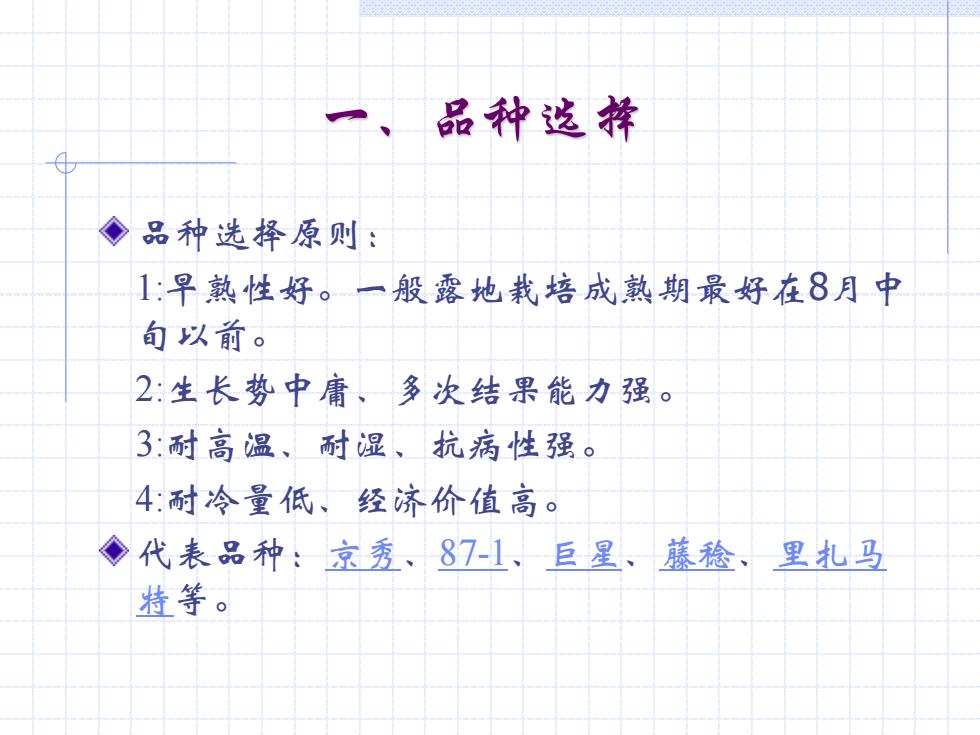 一、品种选择
品种选择原则：
1:早熟性好。一般露地栽培成熟期最好在8月中
旬以前。
2:生长势中庸、多次结果能力强。
3:耐高温、耐湿、抗病性强。
4:耐冷量低、经济价值高。
代表品种：京秀、87-1、巨星、藤稔、里扎马
特等。